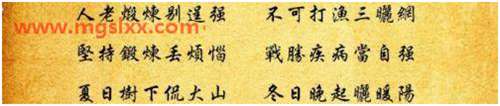 人老煅煉别逞强 不可打漁三曬網
www.mgslxx.com
堅持鍛煉丢煩惱 戰勝疾病當自强
夏日樹下侃大山 冬日晚起曬暖陽